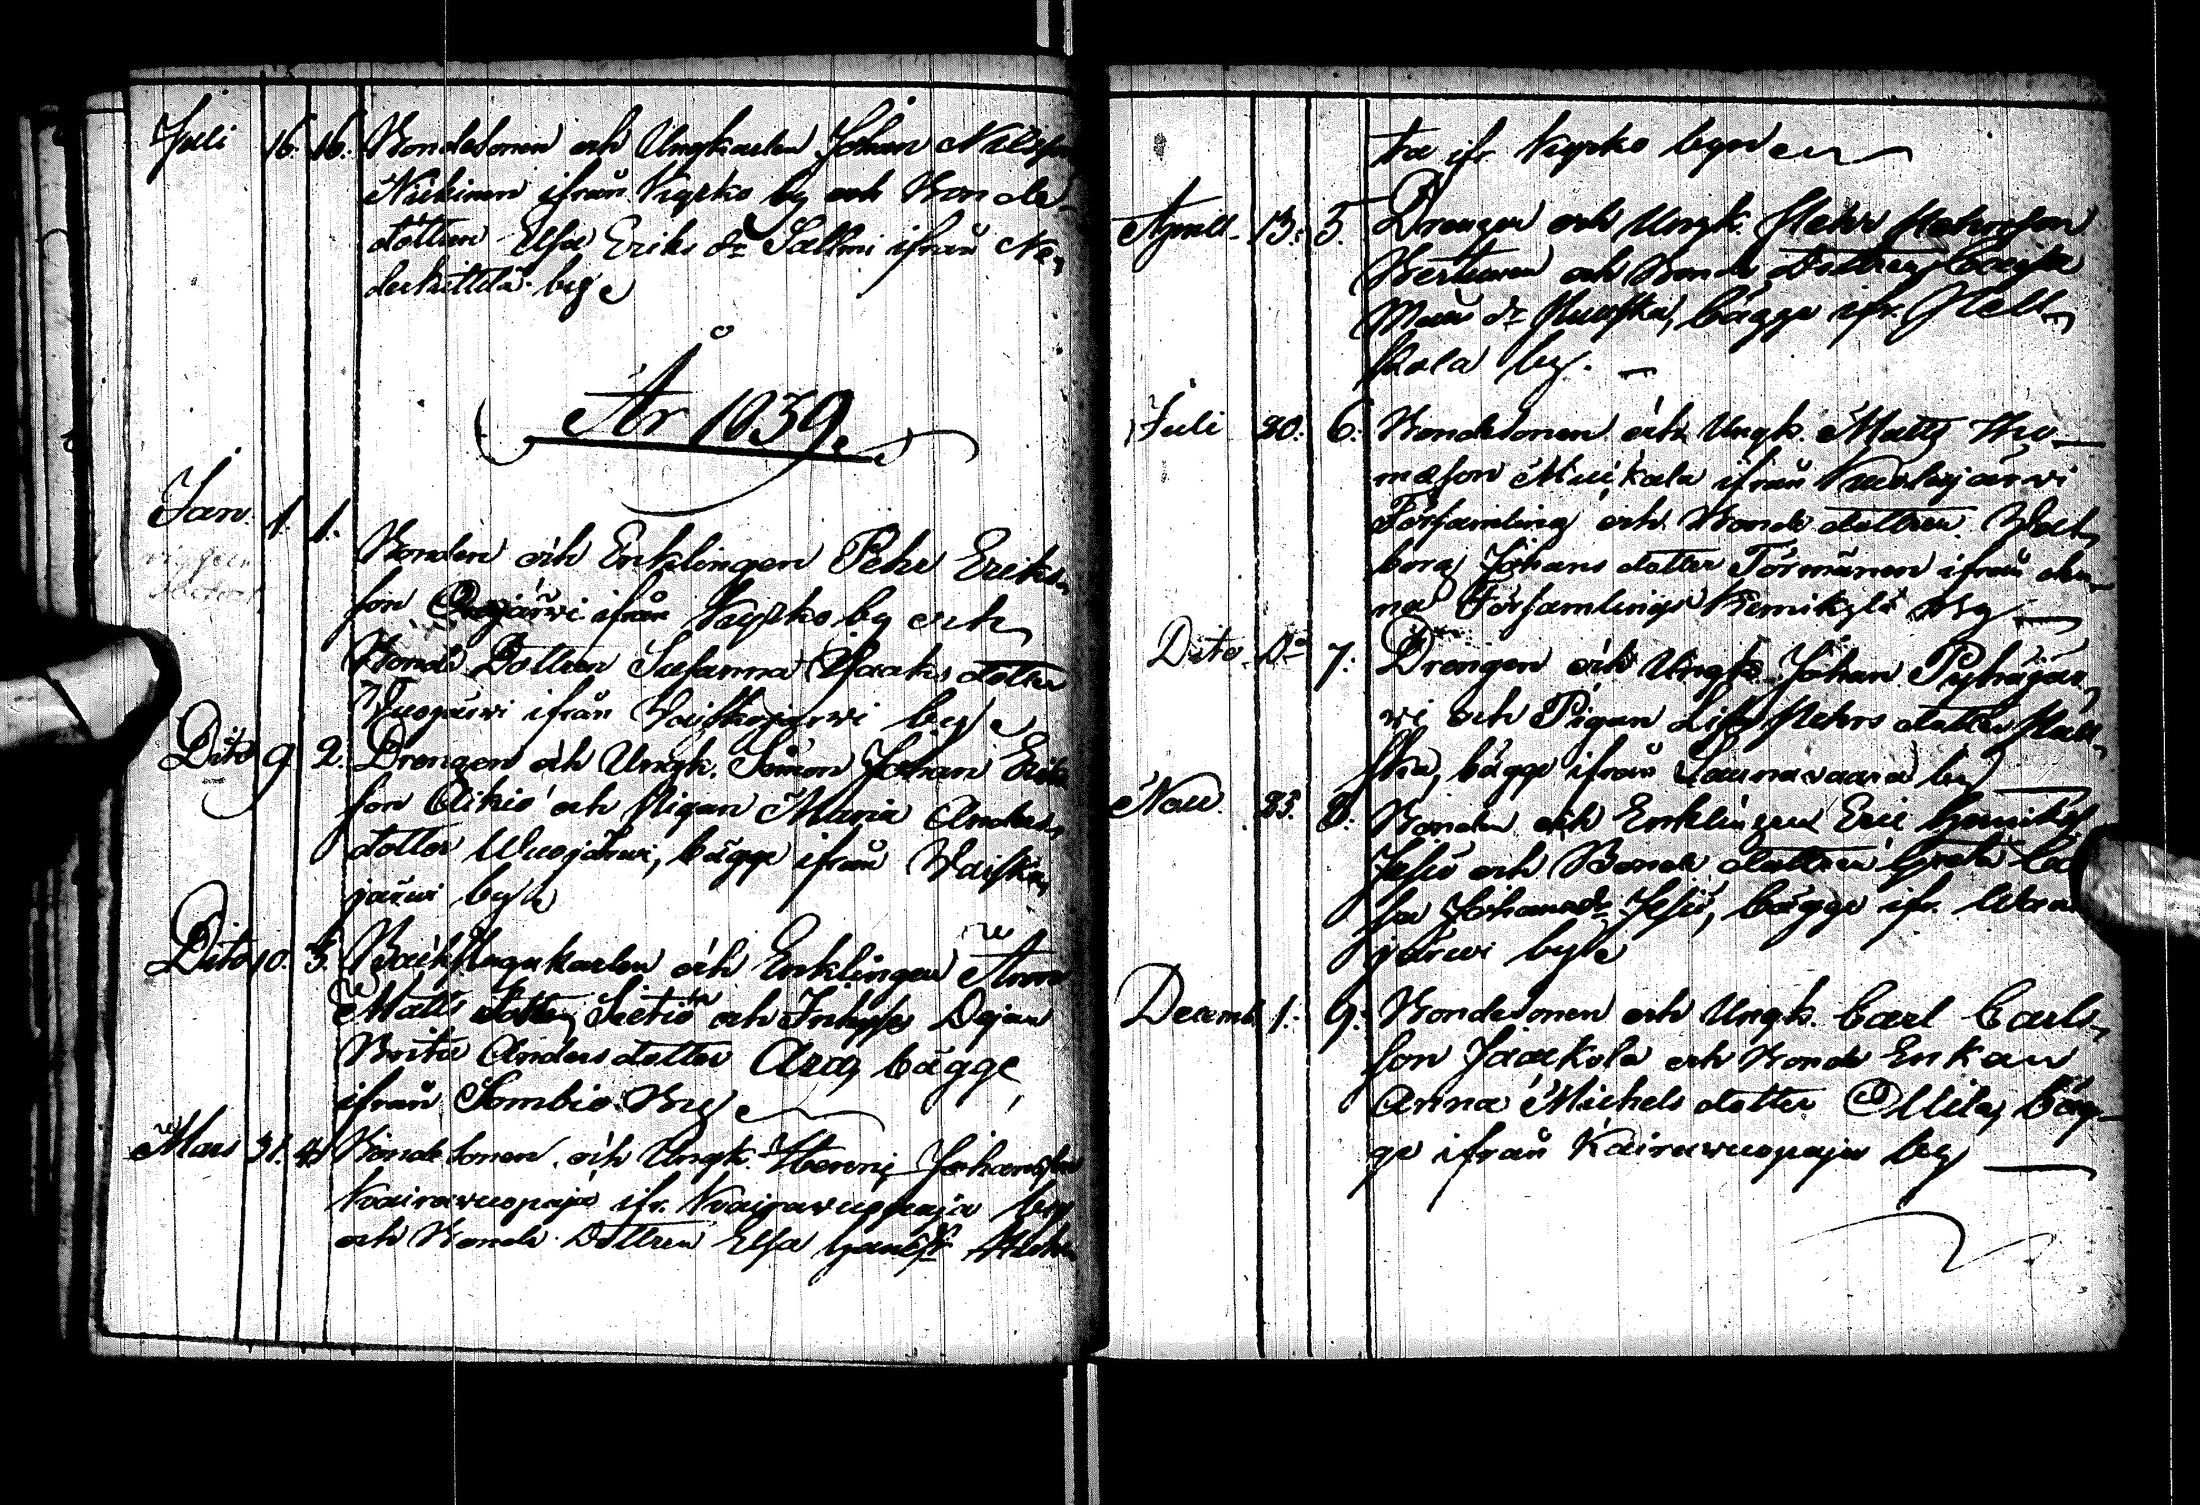 Juli 16. 16. Bondesonen och Ungkarlen Johan Nilsson
Niskinen ifrån Kyrko by och Bonde-
dottren Elsa Eriks dr Salmi ifrån Ne-
derkittilä by
År 1839.
Jan. 1. 1.
Bonden och Enklingen Pehr Eriks-
son ifrån Kyrko by och
Bonde Dottren Susanna Isaks dotter
Wuojärvi ifrån Waiskojärvi by
Dito 9. 2. Drengen och Ungk. Simon Johan Eriks
son Aikio och Pigan Maria Anders
dotter Wuojärwi, bägge ifrån Waisko,
järwi by
Dito 10. 3. och Enklingen Aron
Matts Sietiö och Inhyses Dejan
Brita Anders dotter Ara, bägge
ifrån Sombio By
Mars 31. 4. Bondesonen och Ungk. Henric Johansson
Kairawuopaja ifr. Kairawuopaja by
och Bonde Dottren Elsa
ta ifr. Kyrko byn
Aprill 13. 5. Drengen och Ungk. Pehr Pehrsson
och Bonde dottren Cajsa
Mats dr bägge ifr. Pelt-
by.
Juli 20. 6. Bondesonen och Ungk. Matts Tho-
masson ifrån Kuolajärvi
Församling och Bonde dottren Wal-
borg Johans dotter Törmänen ifrån den-
na Församlings Kemikylä By
Dito Do 7. Drengen och Ungk. Johan Pyhäjär-
vi och Pigan Pehrs dotter
bägge ifrån Saunavaara by
Nov. 25. 8. Bonden och Enklingen Eric Henriks
Jesiö och Bonde dottren Greta
sa Johans dr Jesiö, bägge ifr.
järwi by
Decemb. 1. 9. Bondesonen och Ungk. Carl Carls-
son Jaakola och Bonde Enkan
Anna Michels dotter Ollila, Bäg-
ge ifrån Kairawuopaja by